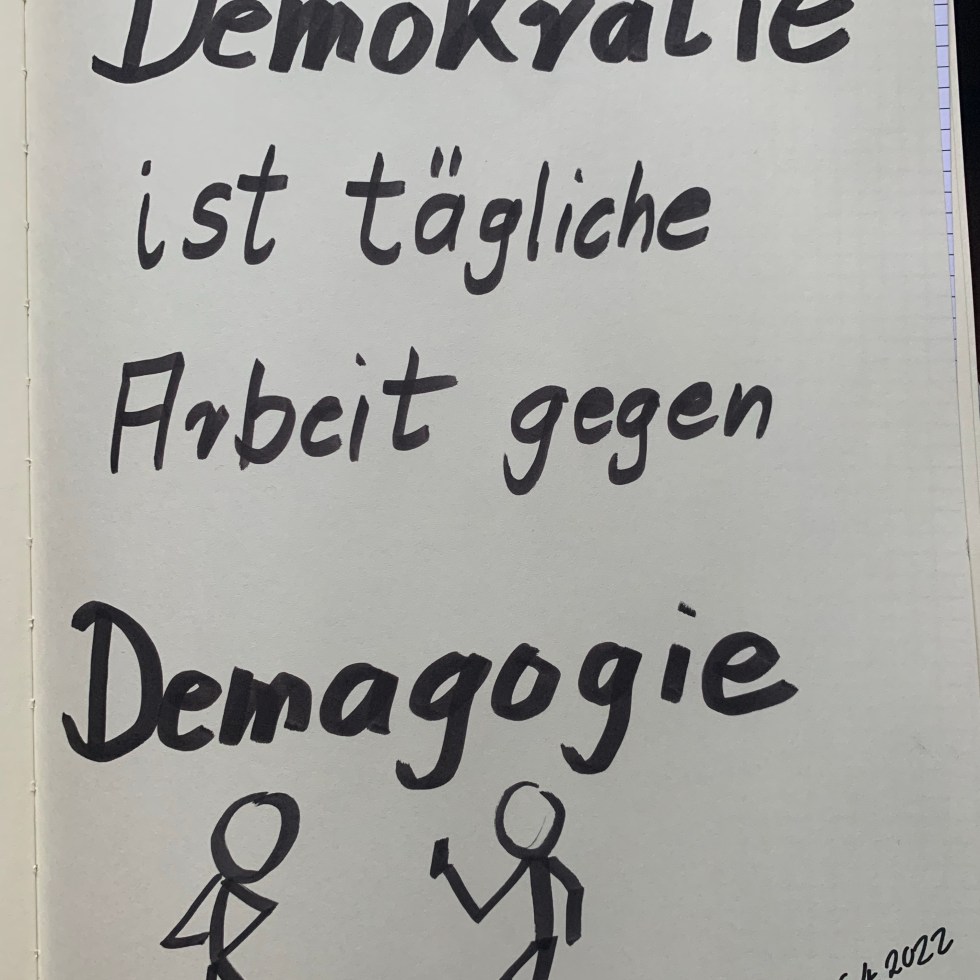 Demokratie
ist tägliche
Arbeit gegen
Demagogie
2022